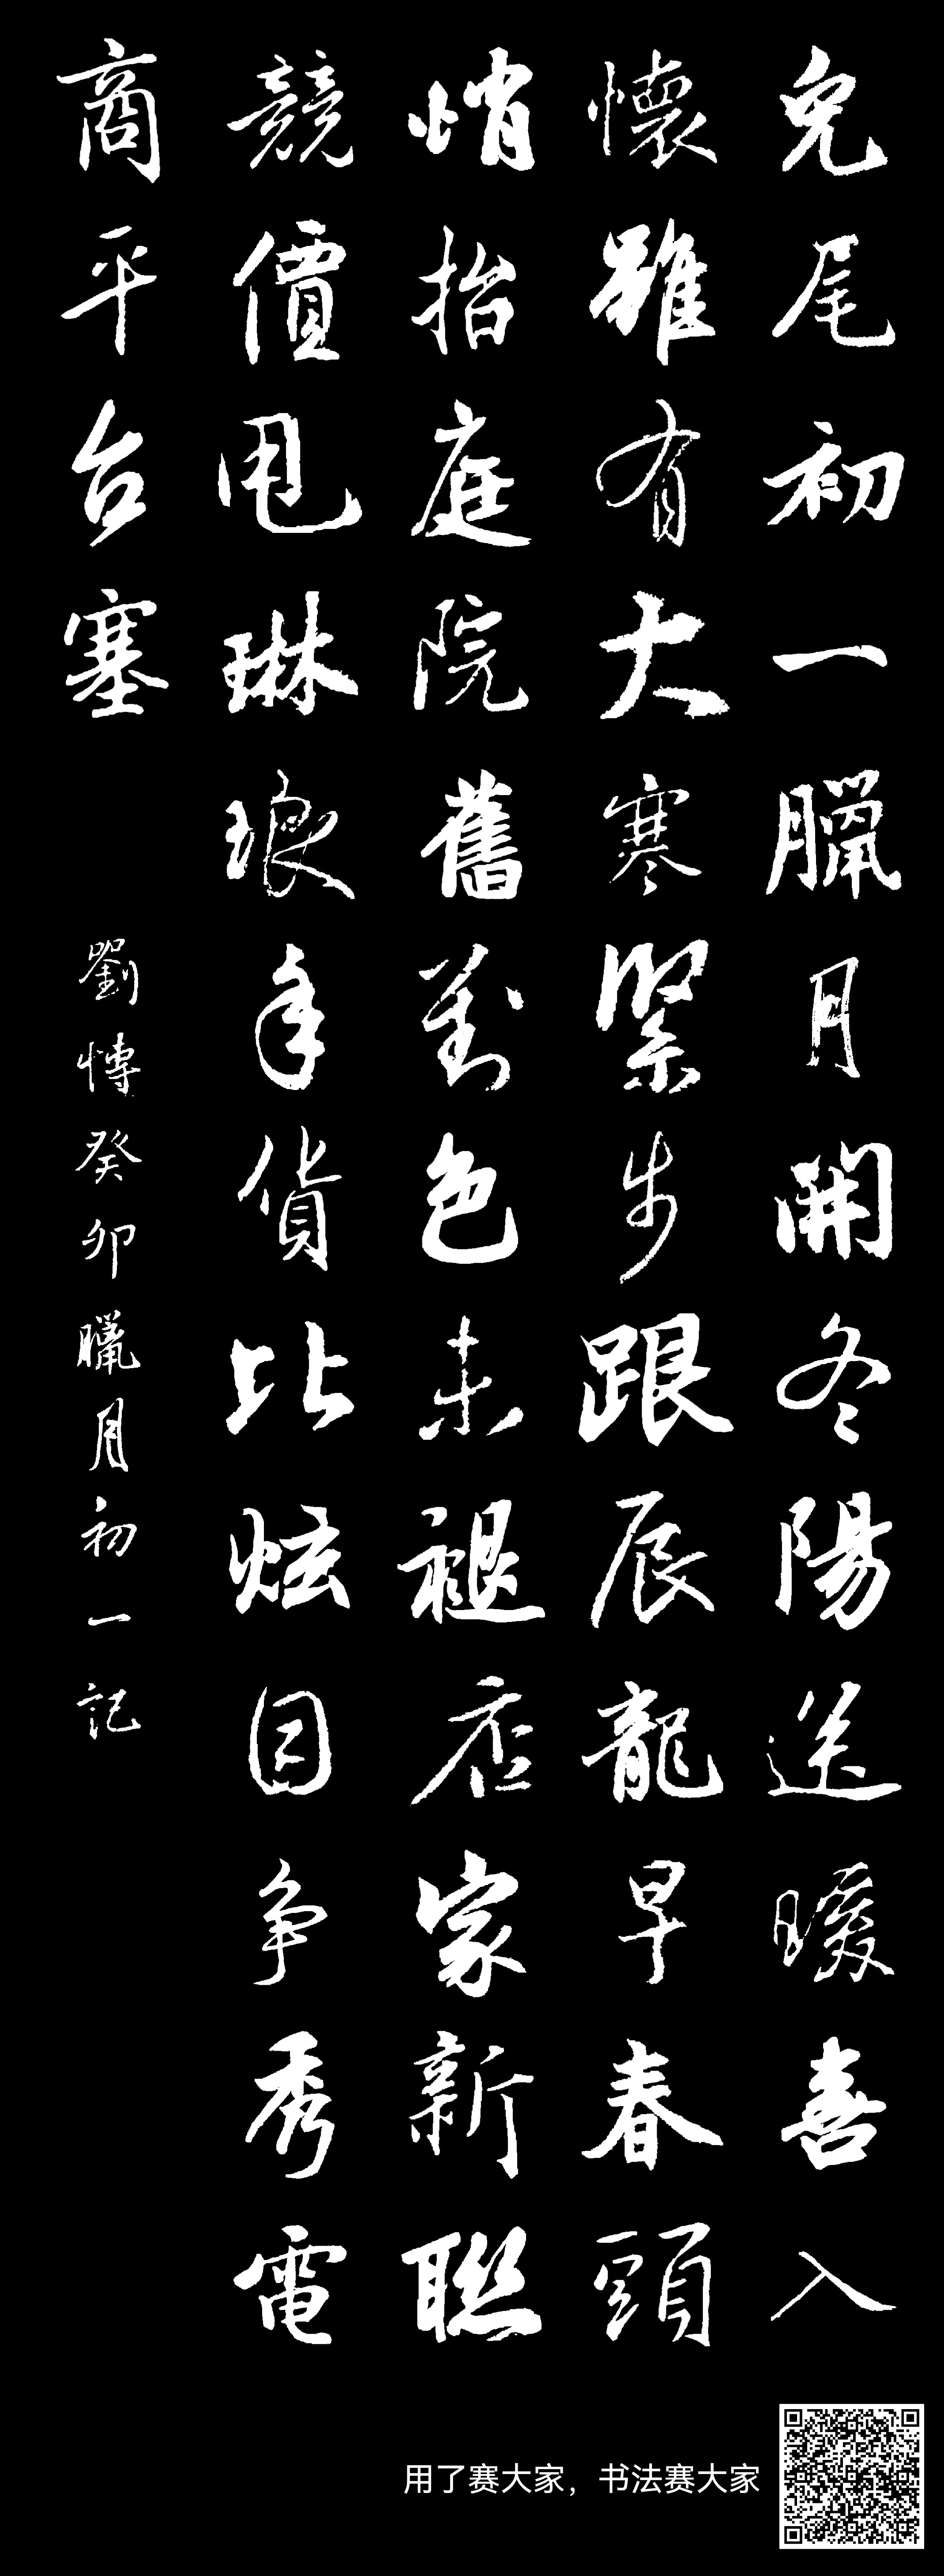 兔尾初一臘月開冬陽送暖喜入
懷雖有大寒緊步跟辰龍早春頭
悄抬庭院舊對色未褪店家新聯
競價甩琳琅年貨比炫目争秀電
商平台塞
劉愽癸卯臘月初一記
用了赛大家，书法赛大家